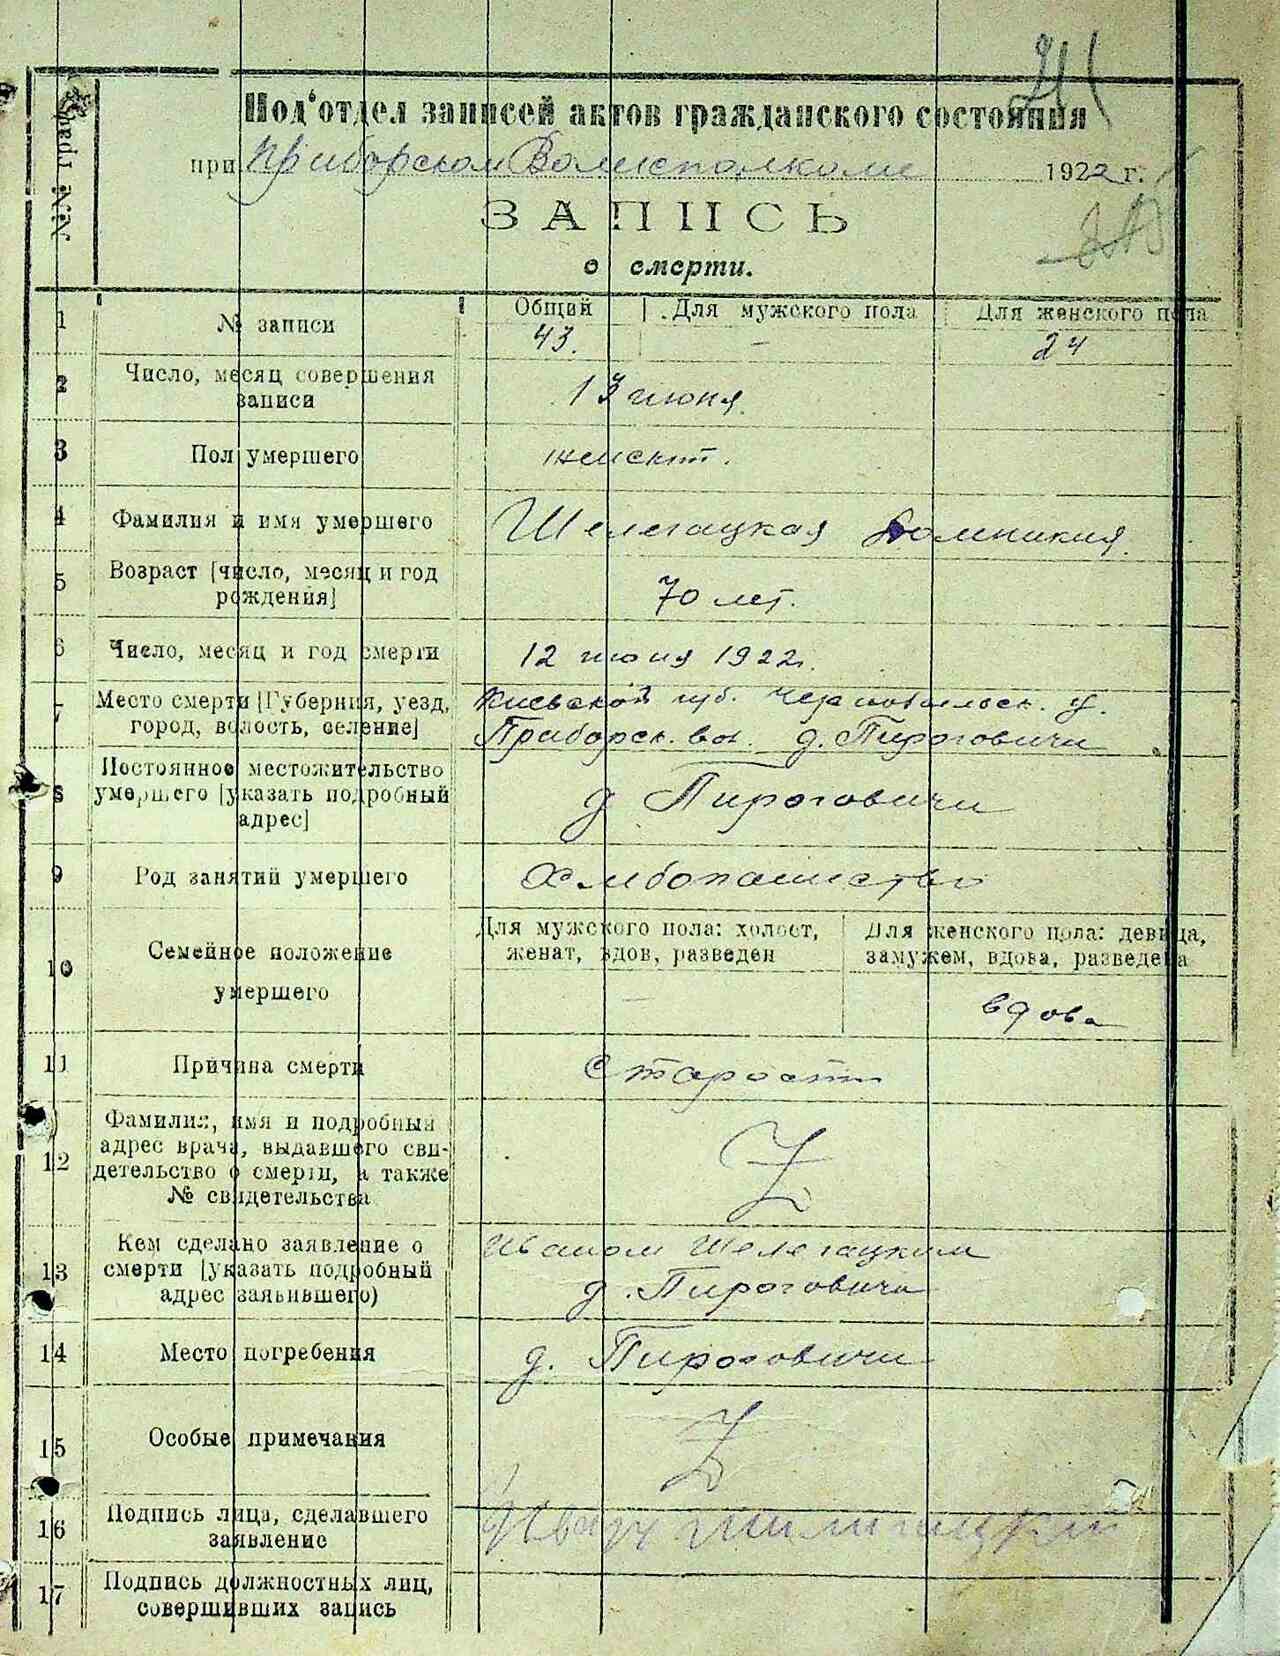 №№ граф
Под'отдел записей актов гражданского состояния
при Приборском Волисполкоме 1922 г.
ЗАПИСЬ
о смерти.
1 № записи Общий Для мужского пола Для женского пола
43. – 24
2 Число, месяц совершения записи 13 июня
3 Пол умершего женский.
4 Фамилия и имя умершего Шелегацкая Домникия.
5 Возраст [число, месяц и год рождения] 70 лет.
6 Число, месяц и год смерти 12 июня 1922г.
7 Место смерти [Губерния, уезд, Киевской губ. Чернобыльск. у.
город, волость, селение] Приборск. вол. д. Пироговичи
Постоянное местожительство
8 умершего [указать подробный д Пироговичи
адрес]
9 Род занятий умершего Хлебопашество
10 Семейное положение умершего
Для мужского пола: холост, Для женского пола: девица,
женат, вдов, разведен замужем, вдова, разведена
– вдова
11 Причина смерти Старости
Фамилия, имя и подробный
адрес врача, выдавшего сви-
12 детельство о смерти, а также
№ свидетельства
Кем сделано заявление о Иваном Шелегацким
13 смерти [указать подробный д. Пироговичи
адрес заявившего)
14 Место погребения д. Пироговичи
15 Особые примечания
16 Подпись лица, сделавшего Иван Шилигацкий
заявление
17 Подпись должностных лиц,
совершивших запись